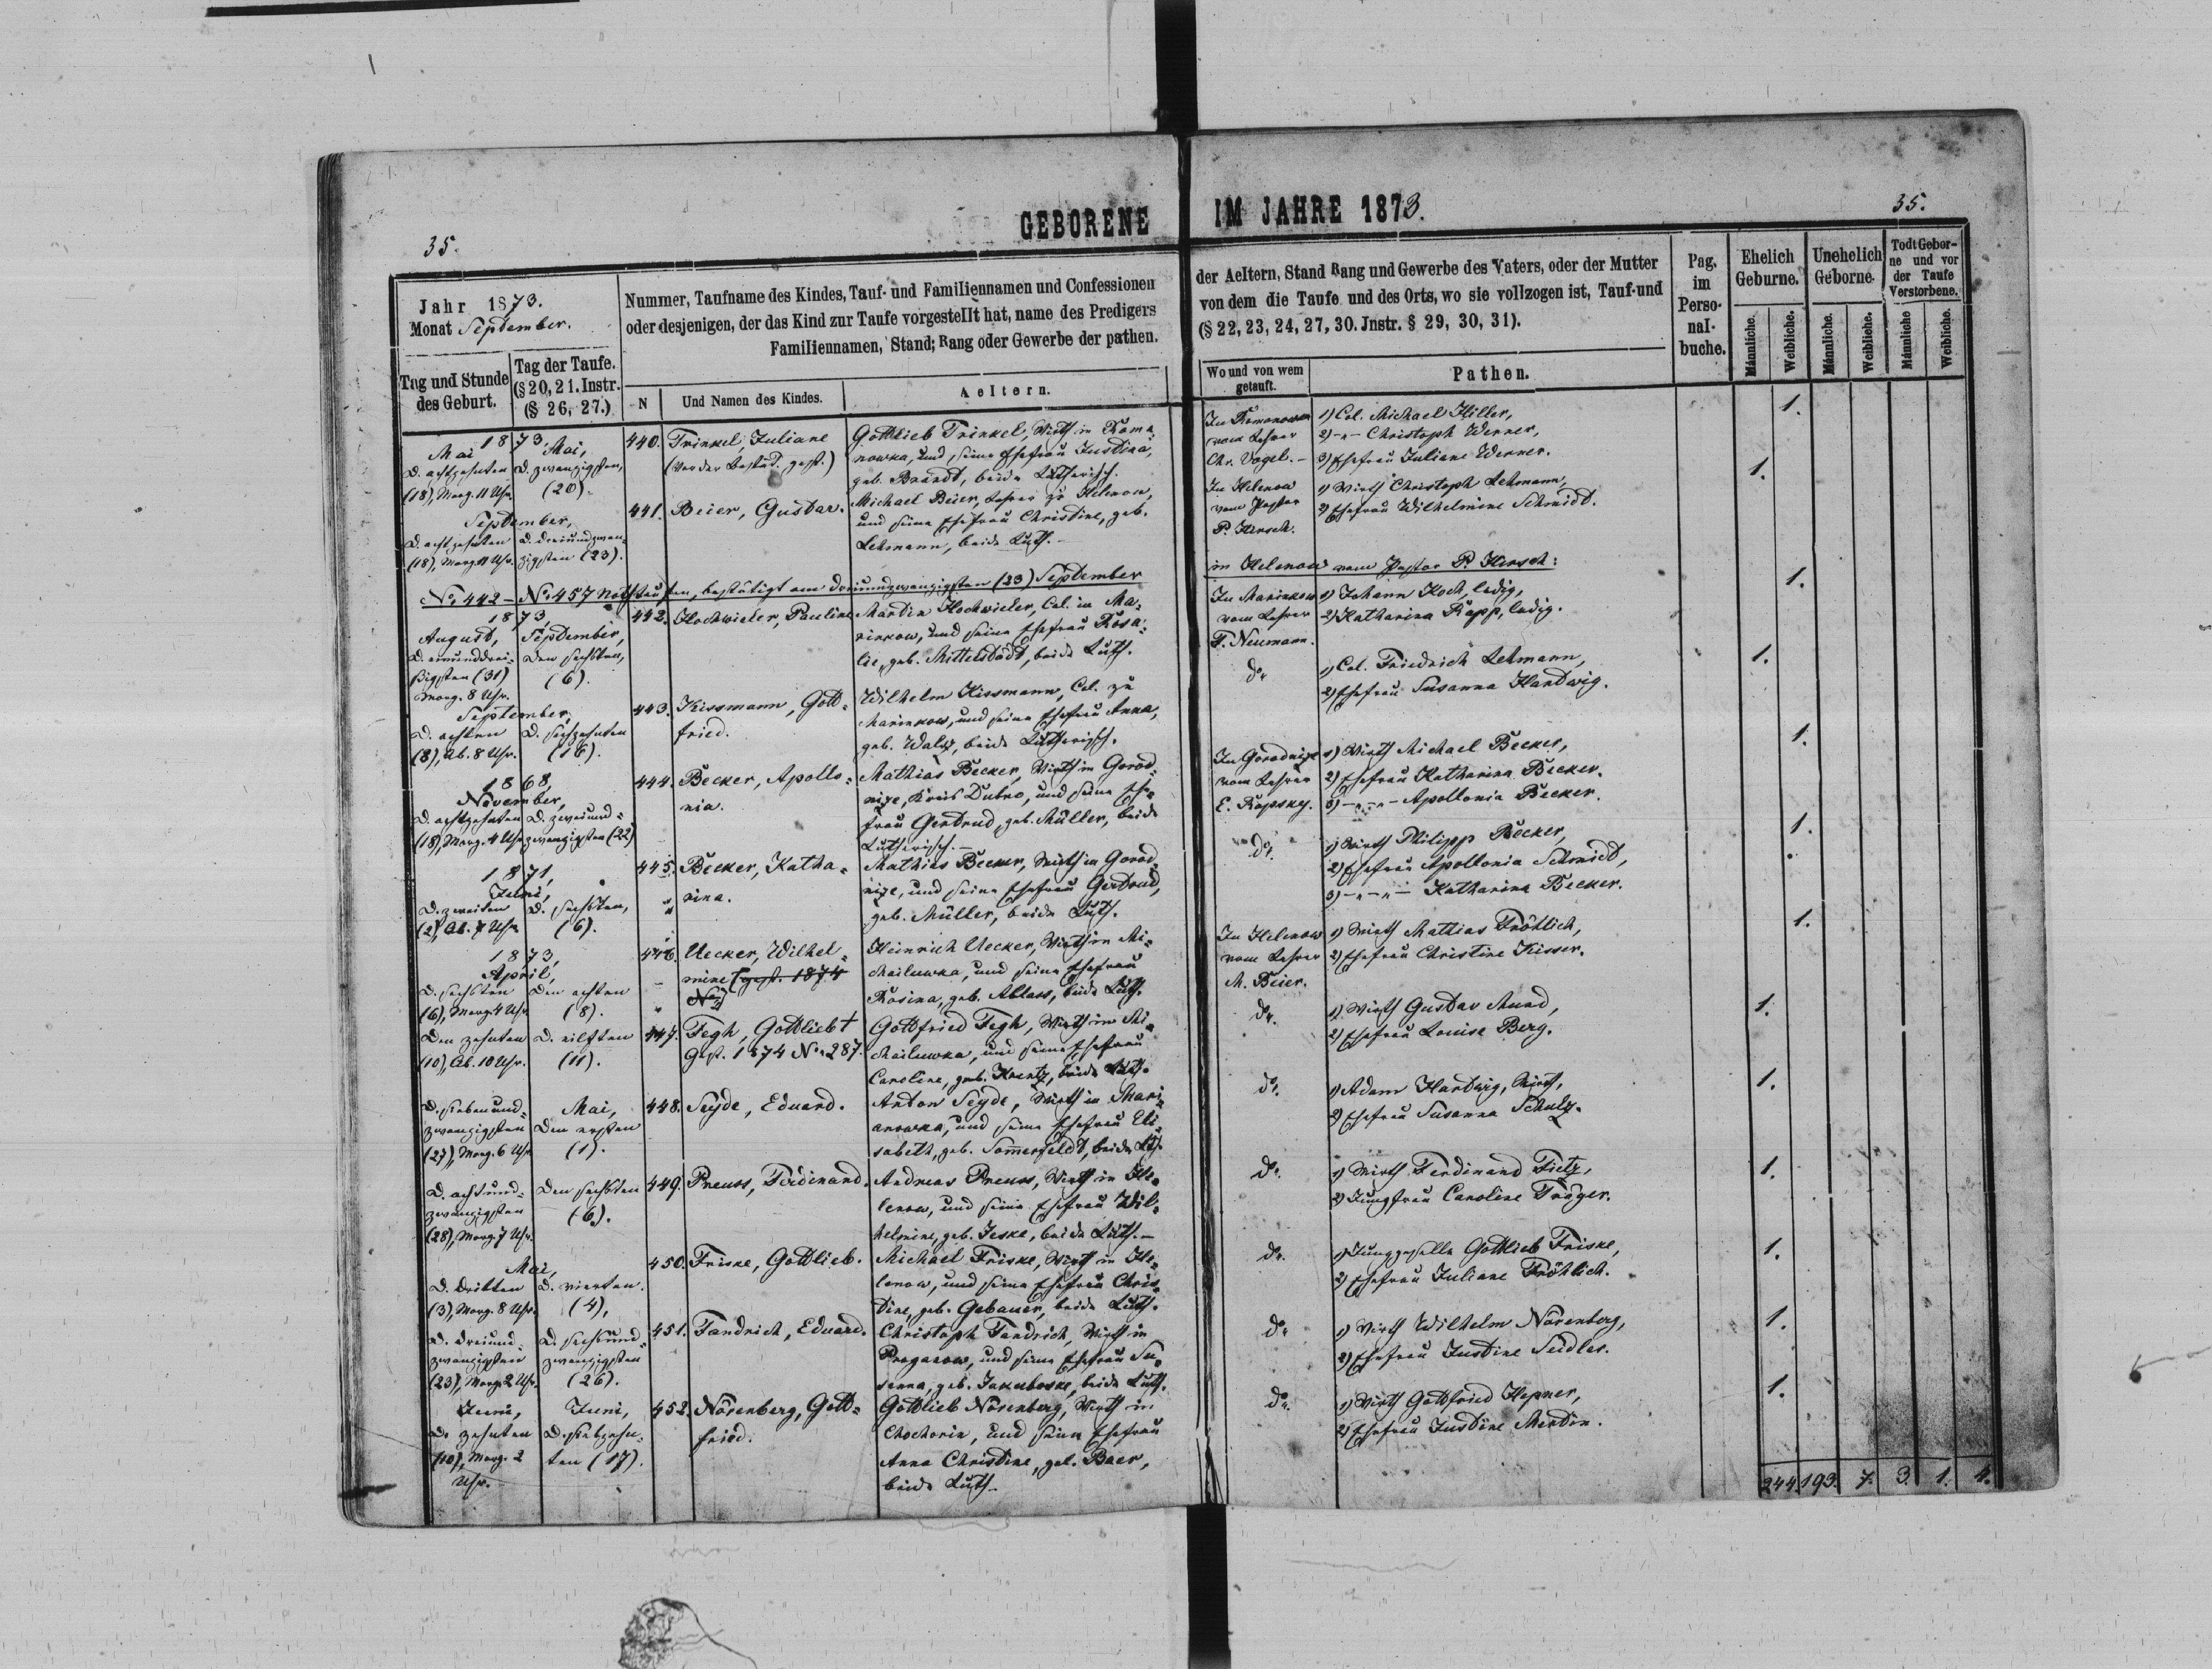 GEBORENE IM JAHRE 1873.
35.
35.
Jahr 1873.
Monat September.
Tag und Stunde des Geburt.
Tag der Taufe. (§ 20, 21. Instr. (§ 26, 27.)
Nummer, Taufname des Kindes, Tauf- und Familiennamen und Confessionen
oder desjenigen, der das Kind zur Taufe vorgestellt hat, name des Predigers
Familiennamen, Stand; Rang oder Gewerbe der pathen.
N
Und Namen des Kindes.
Aeltern.
der Aeltern, Stand Rang und Gewerbe des Vaters, oder der Mutter
von dem die Taufe und des Orts, wo sie vollzogen ist, Tauf-und
(§ 22, 23, 24, 27, 30. Jnstr. § 29, 30, 31).
Wo und von wem getauft.
Pathen.
Pag. im Perso-nal-buche.
Ehelich Geburne.
Unehelich Geborne.
Todt Gebor-ne und vor der Taufe Verstorbene.
Männliche.
Weibliche.
Männliche.
Weibliche.
Männliche
Weibliche.
1873,
Mai
D. achtzehnten
(18), Morg. 11 Uhr.
Mai,
D. zwanzigsten,
(20).
440. Trinkel, Juliane
(Vor der Bestäd. gest.)
Gottlieb Trinkel, Wirth in Roma-
nowka, und seine Ehefrau Justina,
geb. Brandt, beide Lutherisch.
In Romanowka
vom Lehrer
Chr. Vogel. -
1) Col. Michael Hiller,
2) -"- Christoph Werner,
3) Ehefrau Juliane Werner.
1.
September,
D. achtzehnten
(18), Morg. 11 Uhr.
D. dreiundzwan-
zigsten (23).
441. Beier, Gustav.
Michael Beier, Lehrer zu Helenow,
und seine Ehefrau Christine, geb.
Lehmann, beide Luth. -
In Helenow
vom Pastor
P. Hirsch.
1) Wirth Christoph Lehmann,
2) Ehefrau Wilhelmine Schmidt.
1.
No. 442 - No. 457 Nothtaufen, bestätigt am dreiundzwanzigsten (23) September
in Helenow vom Pastor P. Hirsch:
1873,
August,
D. einunddrei-
ßigsten (31)
Morg. 8 Uhr.
September,
den sechsten,
(6).
442. Hochwieler, Pauline
Martin Hochwieler, Col. in Ma-
rinkow, und seine Ehefrau Rosa-
lie, geb. Mittelstädt, beide Luth.
In Marinkow
vom Lehrer
F. Neumann.
1) Johann Koch, ledig,
2) Katharina Rapp, ledig.
1.
September,
D. achten
(8), Ab. 8 Uhr.
D. sechzehnten
(16).
443. Kissmann, Gott-
fried.
Wilhelm Kissmann, Col. zu
Marinkow, und seine Ehefrau Anna,
geb. Walz, beide Lutherisch.
do.
1) Col. Friedrich Lehmann,
2) Ehefrau Susanna Hartwig.
1.
1868,
November,
D. achtzehnten
(18), Morg. 4 Uhr
D. zweiund-
zwanzigsten (22)
444. Becker, Apollo-
nia.
Mathias Becker, Wirth in Gorod-
nize, Kreis Dubno, und seine Ehe-
frau Gertrud, geb. Müller, beide
Lutherisch. -
In Gorodnize
vom Lehrer
E. Kopsky.
1) Wirth Michael Becker,
2) Ehefrau Katharina Becker,
3) -"-"- Apollonia Becker.
1.
1871,
Juni,
D. zweiten
(2), Ab. 7 Uhr
D. sechsten,
(6).
445. Becker, Katha-
rina.
Mathias Becker, Wirth in Gorod-
nize, und seine Ehefrau Gertrud,
geb. Müller, beide Luth.
do.
1) Wirth Philipp Becker,
2) Ehefrau Apollonia Schmidt,
3) -"-"- Katharina Becker.
1.
1873,
April,
D. sechsten
(6), Morg. 4 Uhr
den achten
(8).
446. Uecker, Wilhel-
mine (gest. 1874
No.)
Heinrich Uecker, Wirth in Mi-
chailuwka, und seine Ehefrau
Rosina, geb. Ablass, beide Luth.
In Helenow
vom Lehrer
M. Beier.
1) Wirth Mathias Fröhlich,
2) Ehefrau Christine Kisser.
1.
Den zehnten
(10), Ab. 10 Uhr.
D. eilften
(11).
447. Fegh, Gottlieb †
Gest. 1874 No. 287.
Gottfried Fegh, Wirth in Mi-
chailuwka, und seine Ehefrau
Caroline, geb. Krentz, beide Luth.
do.
1) Wirth Gustav Mund,
2) Ehefrau Louise Berg.
1.
D. siebenund-
zwanzigsten
(27), Morg. 6 Uhr
Mai,
den ersten
(1).
448. Seyde, Eduard.
Anton Seyde, Wirth in Mari-
anowka, und seine Ehefrau Eli-
sabeth, geb. Sommerfeldt, beide Luth.
do.
1) Adam Hartwig, Wirth,
2) Ehefrau Susanna Schulz.
1.
D. achtund-
zwanzigsten
(28), Morg. 7 Uhr.
den sechsten
(6).
449. Preuss, Ferdinand.
Andreas Preuss, Wirth in He-
lenow, und seine Ehefrau Wil-
helmine, geb. Jeske, beide Luth. -
do.
1) Wirth Ferdinand Fietz,
2) Jungfrau Caroline Träger.
1.
Mai,
D. dritten
(3), Morg. 8 Uhr.
D. vierten.
(4),
450. Friske, Gottlieb.
Michael Friske, Wirth in He-
lenow, und seine Ehefrau Chris-
tine, geb. Gebauer, beide Luth.
do.
1) Junggeselle Gottlieb Friske,
2) Ehefrau Juliane Fröhlich.
1.
D. dreiund-
zwanzigsten
(23), Morg. 2 Uhr.
D. sechsund-
zwanzigsten
(26).
451. Fandrich, Eduard.
Christoph Fandrich, Wirth in
Proganow, und seine Ehefrau Su-
sanna, geb. Jakuboske, beide Luth.
do.
1) Wirth Wilhelm Nörenberg,
2) Ehefrau Justine Seidler.
1.
Juni,
D. zehnten
(10), Morg. 2
Uhr.
Juni,
D. siebzehn-
ten (17).
452. Nörenberg, Gott-
fried.
Gottlieb Nörenberg, Wirth in
Chochorin, und seine Ehefrau
Anna Christine, geb. Baer,
beide Luth.
do.
1) Wirth Gottfried Hepner,
2) Ehefrau Justine Merdin.
1.
244. 193. 7. 3. 1. 1.